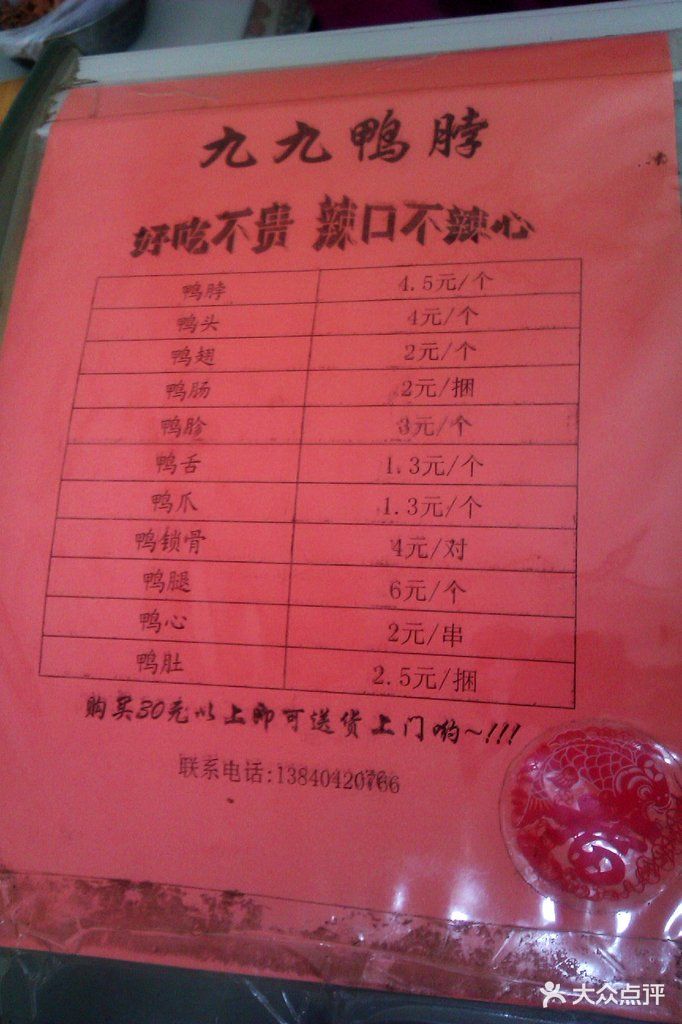 九九鸭脖
好吃不贵 辣口不辣心
鸭脖 4.5元/个
鸭头 4元/个
鸭翅 2元/个
鸭肠 2元/捆
鸭胗 3元/个
鸭舌 1.3元/个
鸭爪 1.3元/个
鸭锁骨 4元/对
鸭腿 6元/个
鸭心 2元/串
鸭肚 2.5元/捆
购买30元以上即可送货上门哟~!!!
联系电话:13840420766
大众点评